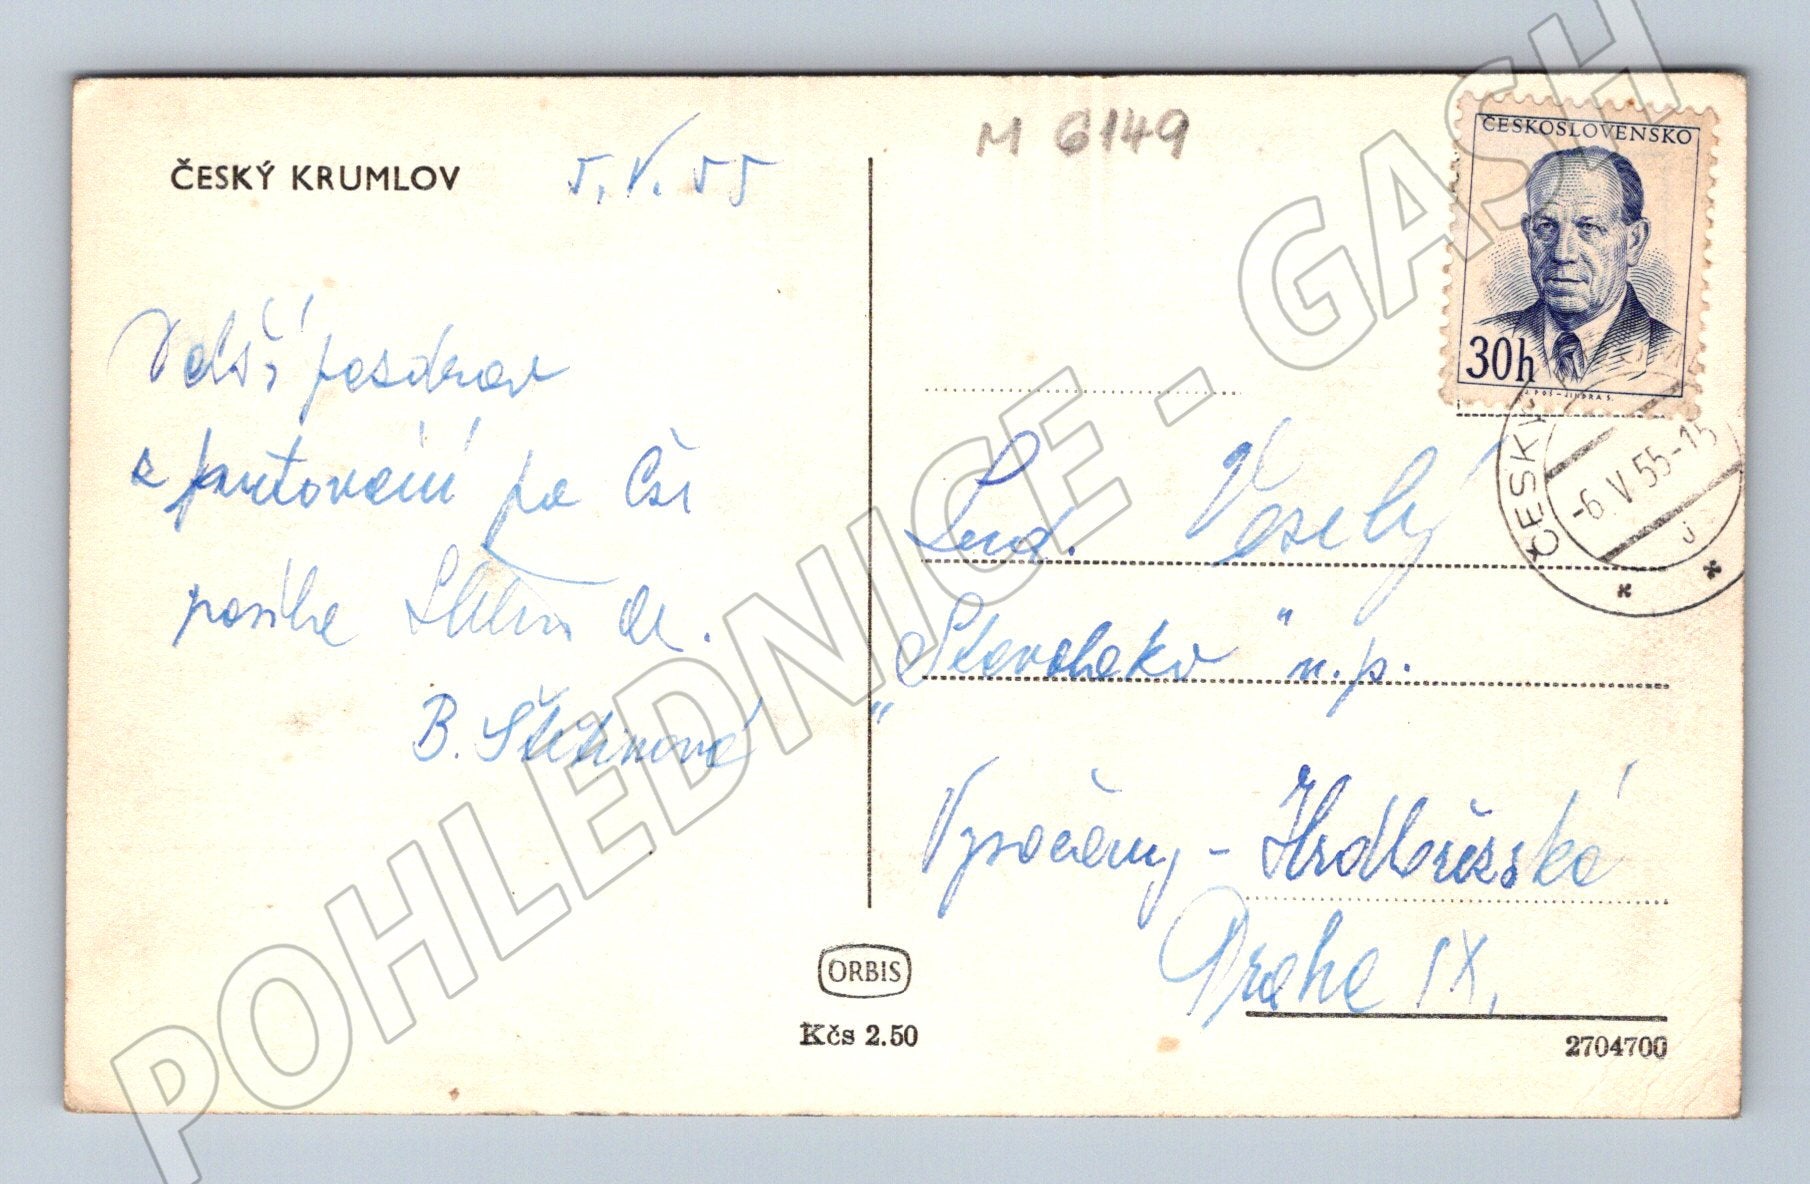 ČESKÝ KRUMLOV
5. V. 55
Další pozdrav
z putování po ČSR
posílá
B. Štětinová
M 6149
ČESKOSLOVENSKO
30h
ČESKÝ
-6. V 55-15
J
Lud. Veselý
"Stavoleko" n.p.
Vysočany - Hrdlořezská
Praha IX.
ORBIS
Kčs 2.50
2704700
POHLEDNICE - GASH